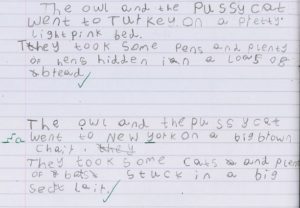 The owl and the Pussy cat
went to Turkey on a pretty
light pink bed.
They took some pens and plenty
of hens hidden in a loaf of
bread.
The owl and the pussy cat
went to New york on a big brown
chair. they
They took some cats and plen
of bats stuck in a big